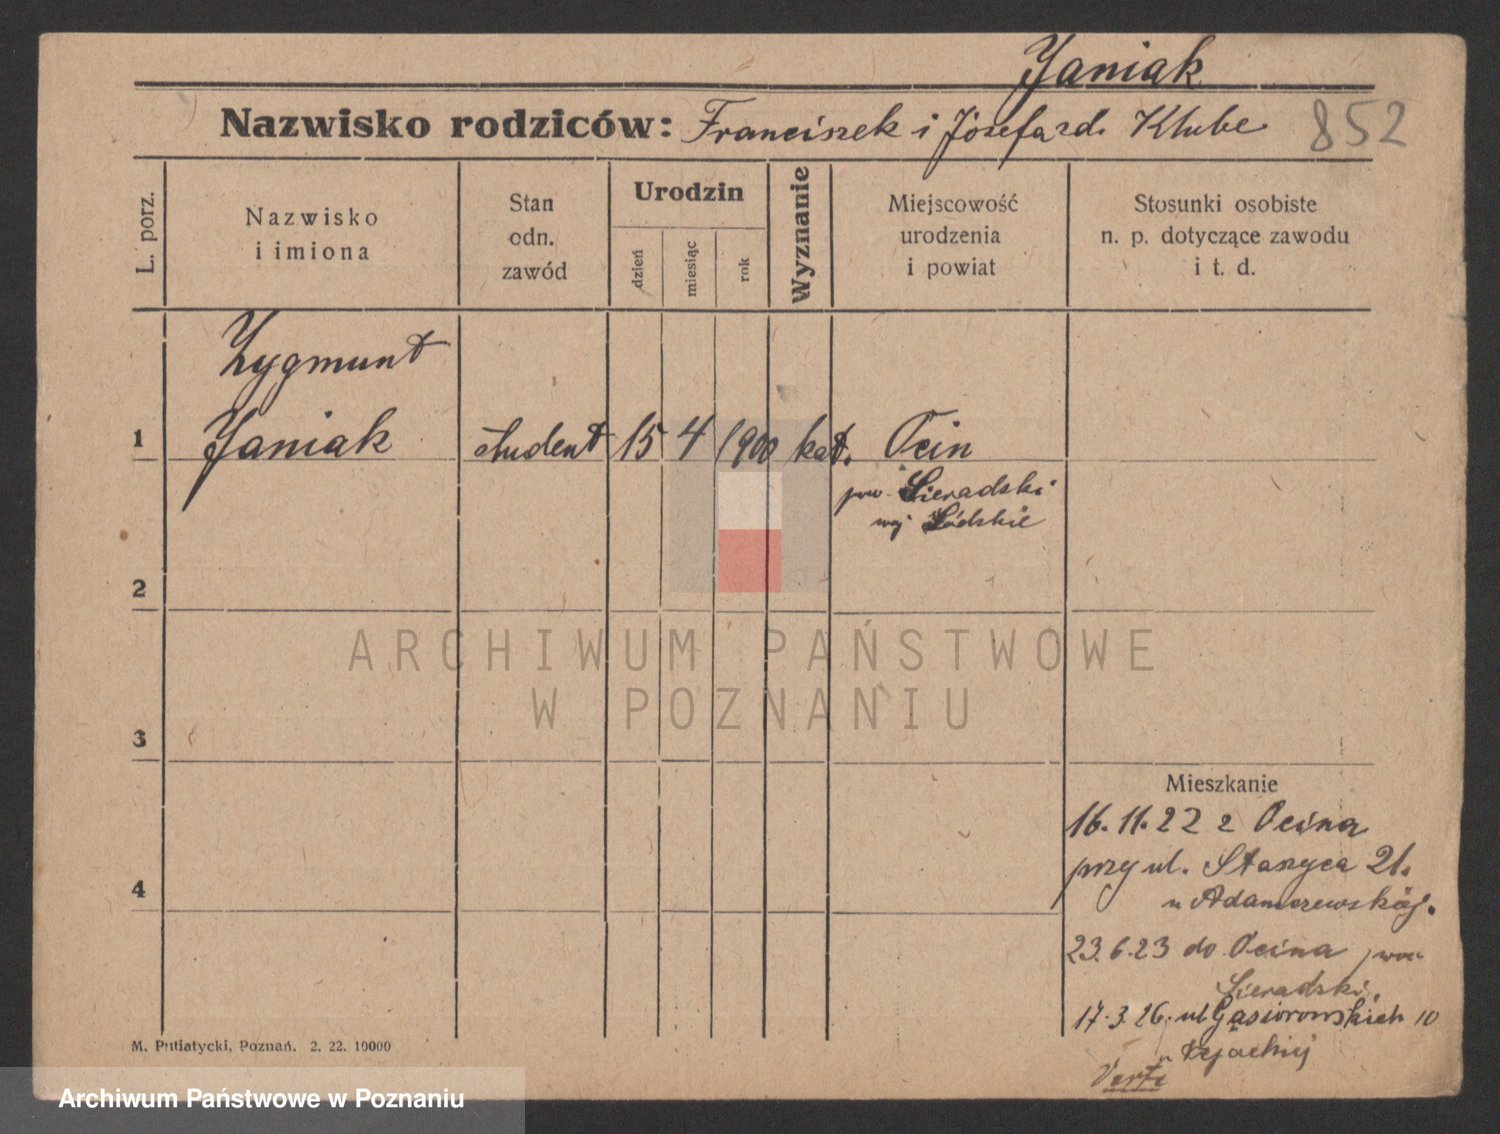 Janiak
Nazwisko rodziców: Franciszek i Józefa zd. Klube 852
L. porz.
Nazwisko
i imiona
Stan
odn.
zawód
Urodzin
dzień
miesiąc
rok
Wyznanie
Miejscowość
urodzenia
i powiat
Stosunki osobiste
n. p. dotyczące zawodu
i t. d.
Zygmunt
1 Janiak student 15 4 1900 kat. Ocin
pow. Sieradzki
woj Łódzkie
2
ARCHIWUM PAŃSTWOWE
W POZNANIU
3
Mieszkanie
16. 11. 22 z Ocina
przy ul. Staszyca 21.
4
u Adamczewskiej.
23. 6. 23 do Ocina pow.
Sieradzki.
17. 3. 26. ul Gąsiorowskich 10
u
Verte
M. Putiatycki, Poznań. 2. 22. 10000
Archiwum Państwowe w Poznaniu